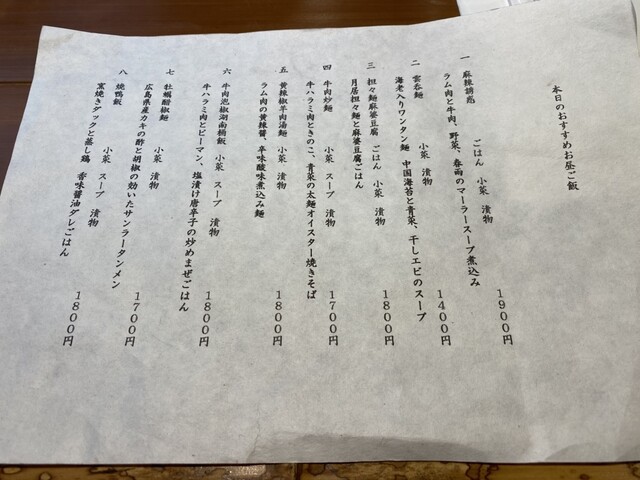 本日のおすすめお昼ご飯
一 麻辣誘惑 ごはん 小菜 漬物
ラム肉と牛肉、野菜、春雨のマーラースープ煮込み 1900円
二 雲呑麺 小菜 漬物
海老入りワンタン麺 中国海苔と青菜、干しエビのスープ 1400円
三 担々麺麻婆豆腐 ごはん 小菜 漬物
月居担々麺と麻婆豆腐ごはん 1800円
四 牛肉炒麺 小菜 スープ 漬物
牛ハラミ肉ときのこ、青菜の太麺オイスター焼きそば 1700円
五 黄辣椒羊肉湯麺 小菜 漬物
ラム肉の黄辣醤、辛味酸味煮込み麺 1800円
六 牛肉泡椒湖南橋飯 小菜 スープ 漬物
牛ハラミ肉とピーマン、塩漬け唐辛子の炒めまぜごはん 1800円
七 牡蠣醋椒麺 小菜 漬物
広島県産カキの酢と胡椒の効いたサンラータンメン 1700円
八 焼鴨飯 小菜 スープ 漬物
窯焼きダックと蒸し鶏 香味醤油ダレごはん 1800円